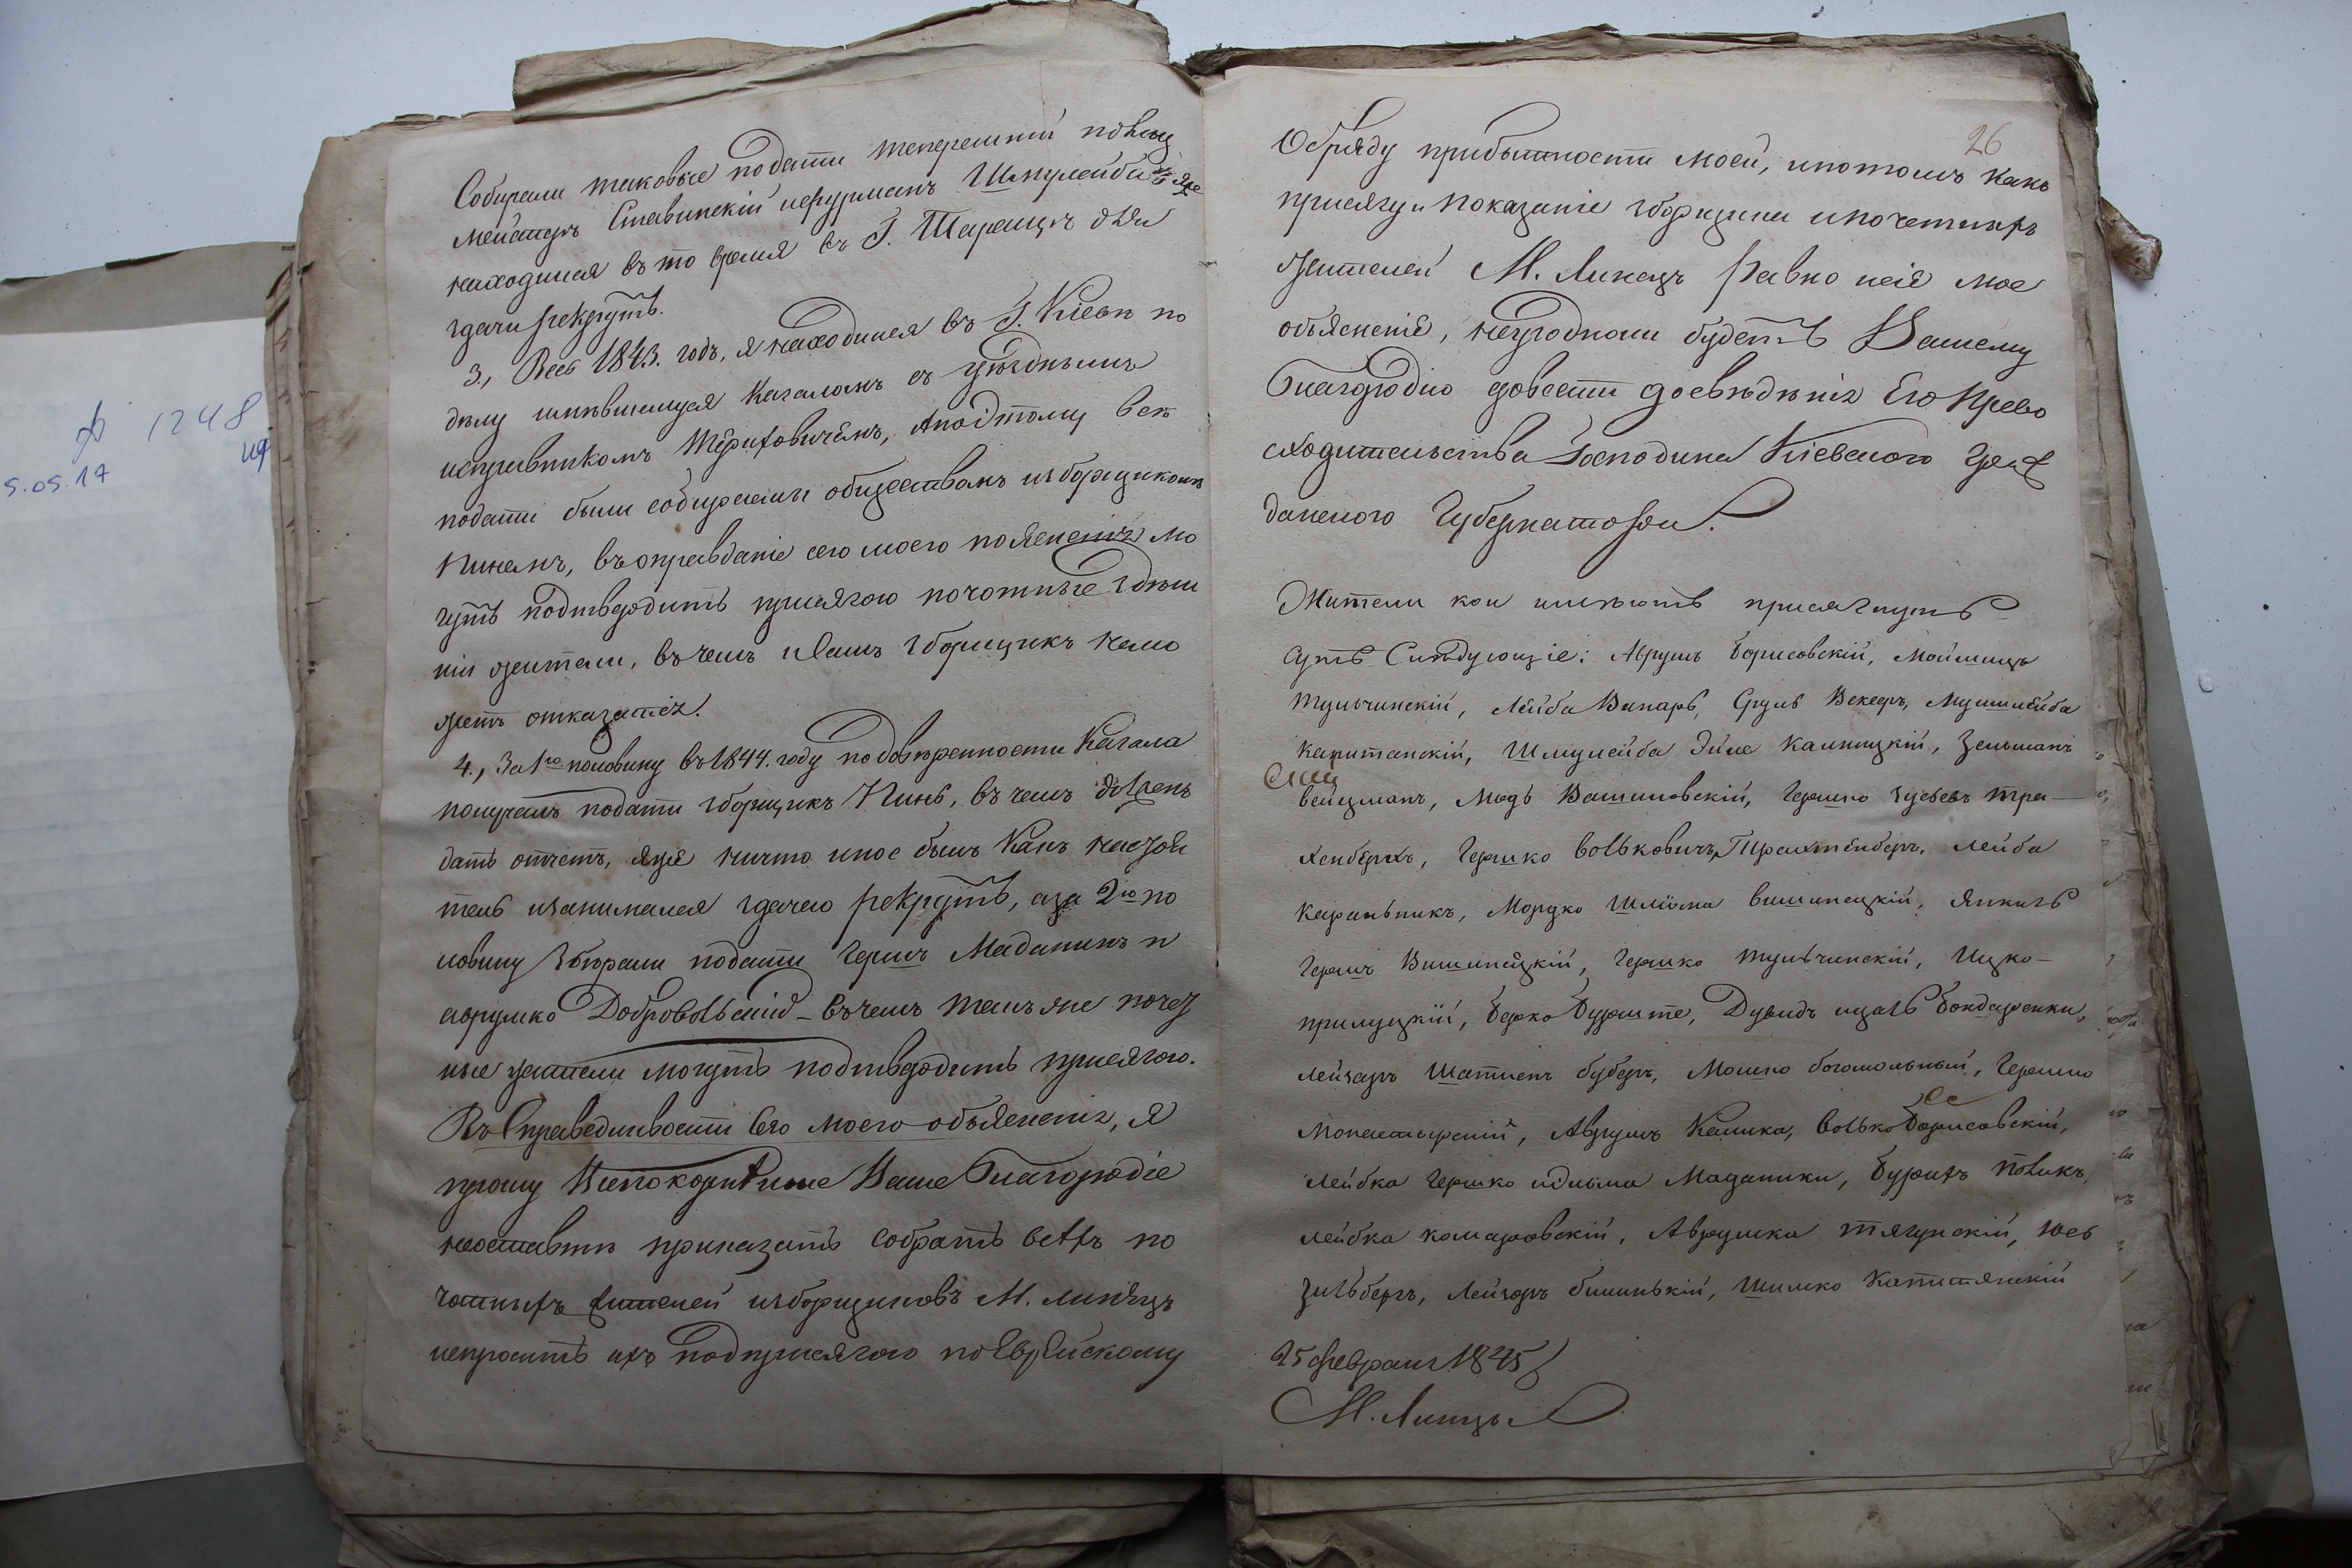 ф 1248
5.05.17
Собирали таковые подати теперешній
Ставинскій ифурманъ Шмулейба
находился въ то время въ Г. Таращѣ для
здачи рекрутъ.
3., Весь 1843. годъ, я находился въ Г. Кіевѣ по
дѣлу имѣвшемуся Кагаломъ съ уѣзднымъ
исправникомъ Терпховичемъ, апоэтому всѣ
подати были собираемы обществомъ изборщикомъ
Пинемъ, въ оправданіе сего моего поясненія мо
гутъ подтвердить присягою почотные здѣш
ніи жители, въ чемъ и самъ зборщикъ немо
жетъ отказатся.
4., За 1ю половину въ 1844. году подовѣренности Кагала
получалъ подати зборщикъ Пинь, въ чемъ долженъ
дать отчетъ, яже ничто иное былъ какъ
тель изанимался здачею рекрутъ, аза 2ю по
ловину збѣрали подати Гершъ Маданикъ и
аврумко Добровольскій - въ чемъ такъ же почез
ные жители могутъ подтвердить присягою.
Въ Справедливости сего моего объясненія, я
прошу Всепокорнѣише Ваше Благородіе
неоставить приказать собрать всѣхъ по
чотныхъ жителей изборщиковъ М. линецъ
испросить ихъ подприсягою по Еврейскому
26
Обряду прибытности моей, ипотомъ какъ
присягу и показаніе зборщика ипочетныхъ
жителей М. Линецъ равно исіе мое
объясненіе, неугодноли будетъ Вашему
Благородію довести досвѣдѣнія Его Прево
сходительства Господина Кіевского Граж
данского Губернатора.
Жители кои имѣютъ присягнуть
суть Слѣдующіе: Аврумъ Борисовскій, Мошицъ
Тульчинскій, Лейба Винарь, Сруль Векеръ, Мушлейба
Капитанскій, Шмулейба Эйле Калницкій, Зельманъ
вейцманъ, Модь Вашиловскій, Гершко зусьевъ тра-
хенберхъ, Гершко вольковичъ Трахтенберъ, лейба
Карыльникъ, Мордко Шліома вишнецкій, Янкель
Гершъ Вишнецкій, Гершко тульчинскій, Ицко-
прилуцкій, берко Бурште, Дувидъ ицаль бондаренки,
лейзаръ Шатненъ буберъ, Мошко богомольный, Гершко
Монастырскій, Аврумъ Калика, волько Борисовскій,
лейбка Гершко идильма Маданики, бурихъ Новикъ,
лейбка комаровскій, Аврумка тягунскій, юсь
зильбергъ, Лейзоръ билинькій, Шимко Капитянскій
25 февраля 1845
М. Линцы